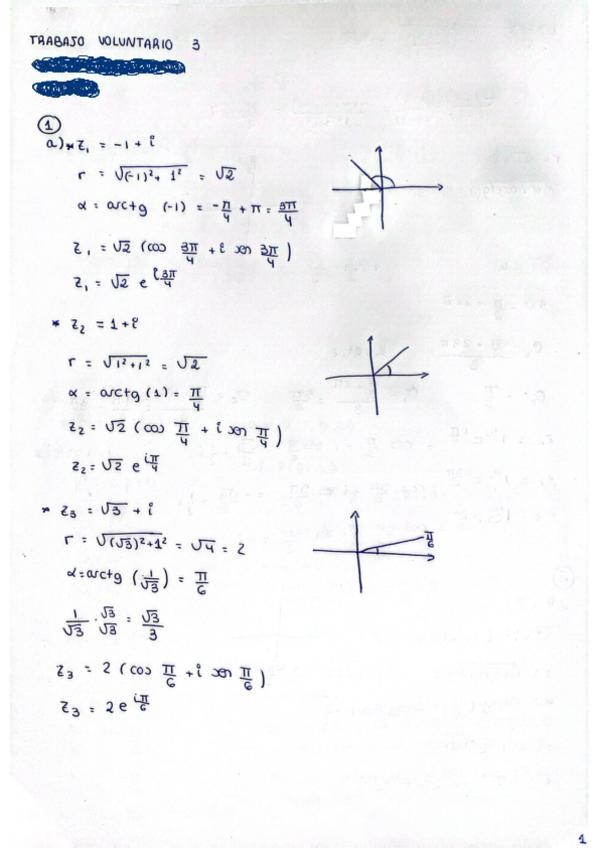 TRABAJO VOLUNTARIO 3
1
a) * z₁ = -1 + i
r = √((-1)² + 1²) = √2
α = arctg (-1) = -π/4 + π = 3π/4
z₁ = √2 (cos 3π/4 + i sen 3π/4)
z₁ = √2 e^(i 3π/4)
* z₂ = 1 + i
r = √(1² + 1²) = √2
α = arctg (1) = π/4
z₂ = √2 (cos π/4 + i sen π/4)
z₂ = √2 e^(i π/4)
* z₃ = √3 + i
r = √((√3)² + 1²) = √4 = 2
π/6
α = arctg (1/√3) = π/6
1/√3 · √3/√3 = √3/3
z₃ = 2 (cos π/6 + i sen π/6)
z₃ = 2 e^(i π/6)
1